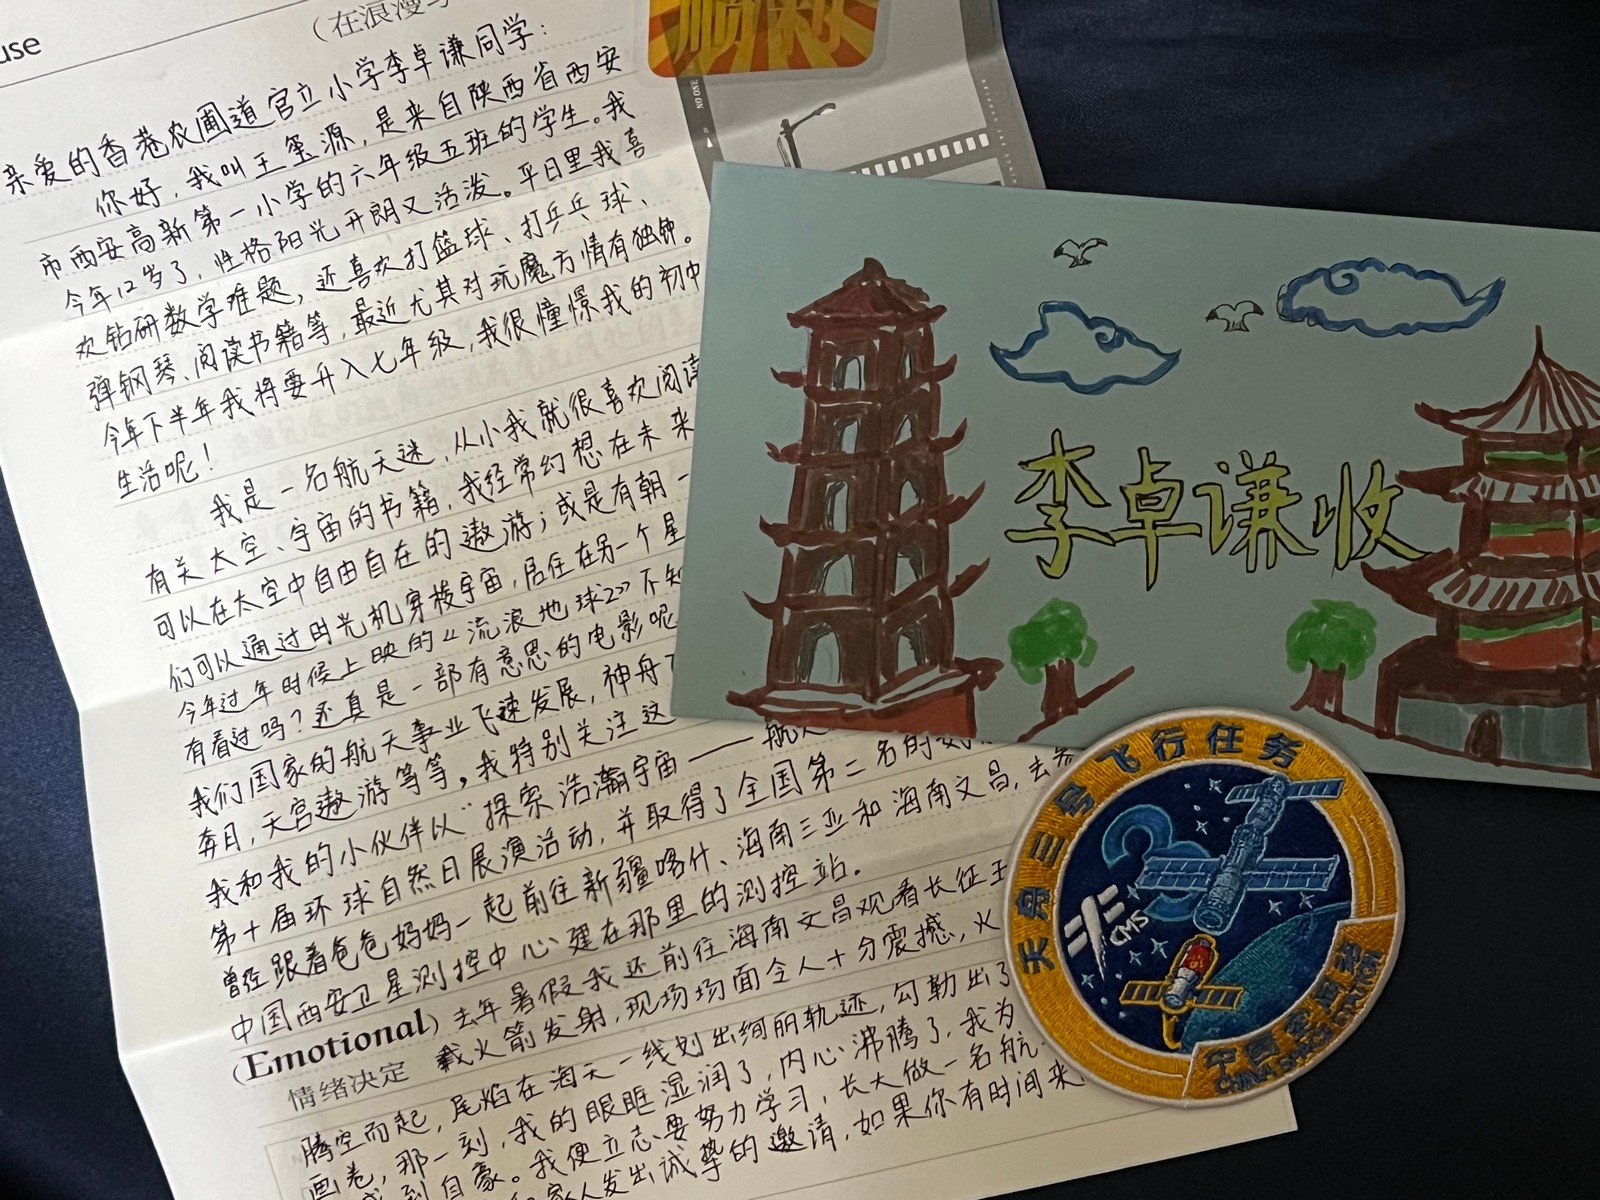 use
(在浪漫
顺
NO ONE
亲爱的香港农圃道官立小学李卓谦同学：
你好，我叫王玺源，是来自陕西省西安
市西安高新第一小学的六年级五班的学生。我
今年12岁了，性格阳光开朗又活泼。平日里我喜
欢钻研数学难题，还喜欢打篮球、打乒乓球、
弹钢琴、阅读书籍等，最近尤其对玩魔方情有独钟。
今年下半年我将要升入七年级，我很憧憬我的初中
生活呢！
我是一名航天迷，从小我就很喜欢阅读
有关太空、宇宙的书籍，我经常幻想在未来
可以在太空中自由自在的遨游；或是有朝一
们可以通过时光机穿梭宇宙，居住在另一个星
今年过年时候上映的《流浪地球2》不知
有看过吗？还真是一部有意思的电影呢
我们国家的航天事业飞速发展，神舟
奔月，天宫遨游等等，我特别关注这
我和我的小伙伴以“探索浩瀚宇宙——航
第十届环球自然日展演活动，并取得了全国第二名的
曾经跟着爸爸妈妈一起前往新疆喀什、海南三亚和海南文昌，去参
中国西安卫星测控中心建在那里的测控站。
(Emotional)
情绪决定
去年暑假我还前往海南文昌观看长征五
载火箭发射，现场场面令人十分震撼，火
腾空而起，尾焰在海天一线划出绚丽轨迹，勾勒出了
画卷，那一刻，我的眼眶湿润了，内心沸腾了，我为
感到自豪。我便立志要努力学习，长大做一名航
家人发出诚挚的邀请，如果你有时间来
李卓谦收
天舟三号飞行任务
CMS
中国空间站
CHINA SPACE STATION